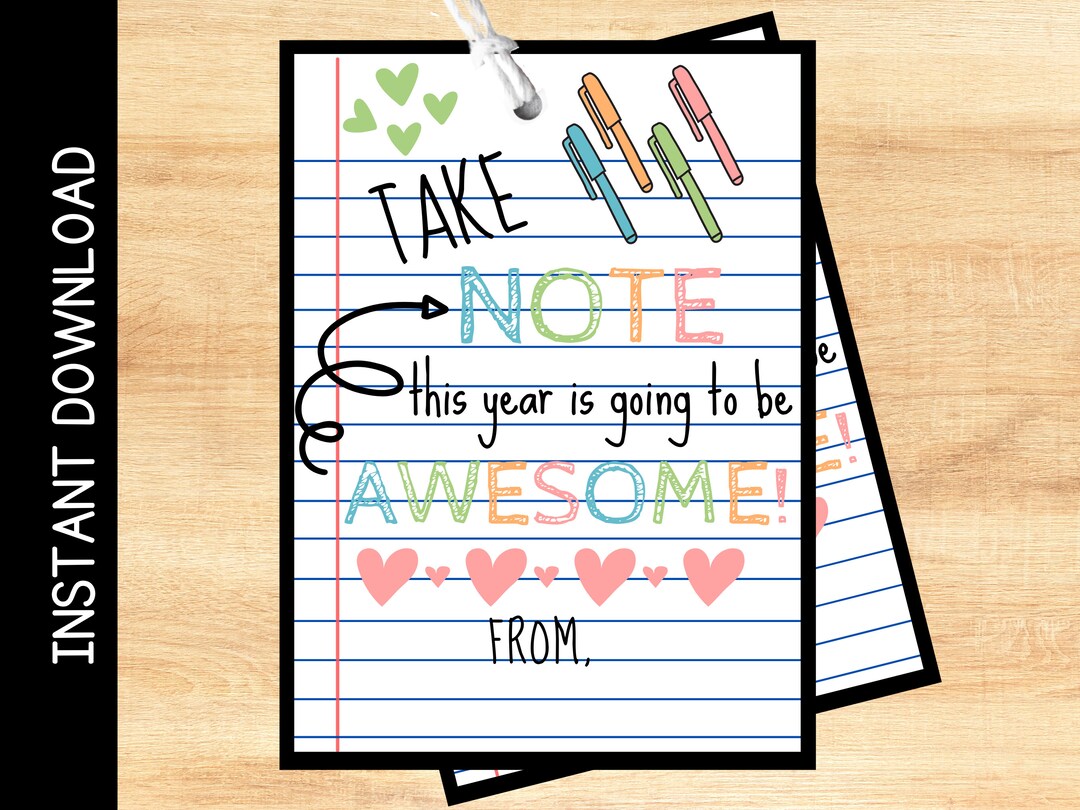 INSTANT DOWNLOAD
TAKE
NOTE
this year is going to be
AWESOME!
FROM,
be
E!